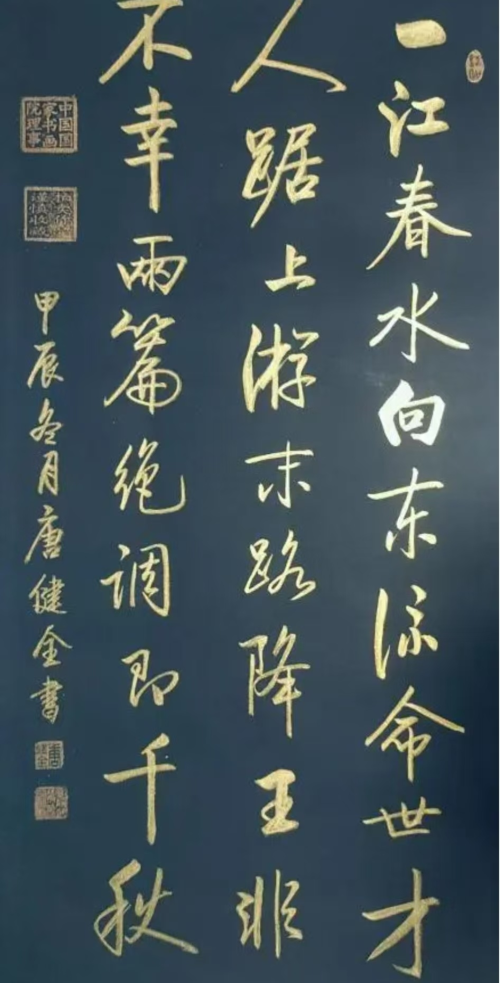 一江春水向东流命世才
人踞上游末路降王非
不幸两篇绝调即千秋
甲辰冬月唐健金书
中国国
家书画
院理事